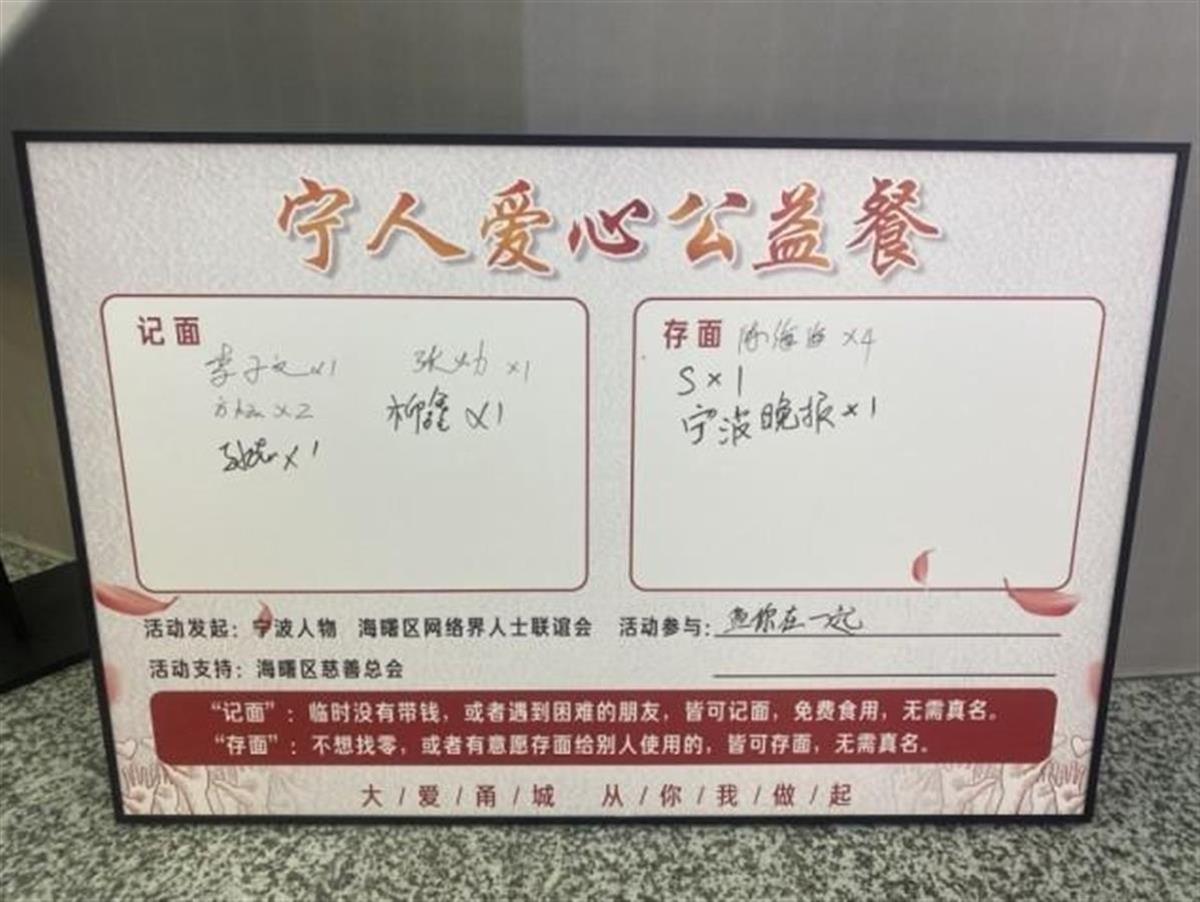 宁人爱心公益餐
记面
李子文x1 张 x1
x2 柳鑫x1
x1
存面 x4
S x 1
宁波晚报x1
活动发起：宁波人物 海曙区网络界人士联谊会 活动参与：你在一起
活动支持：海曙区慈善总会
“记面”：临时没有带钱，或者遇到困难的朋友，皆可记面，免费食用，无需真名。
“存面”：不想找零，或者有意愿存面给别人使用的，皆可存面，无需真名。
大/爱/甬/城 从/你/我/做/起